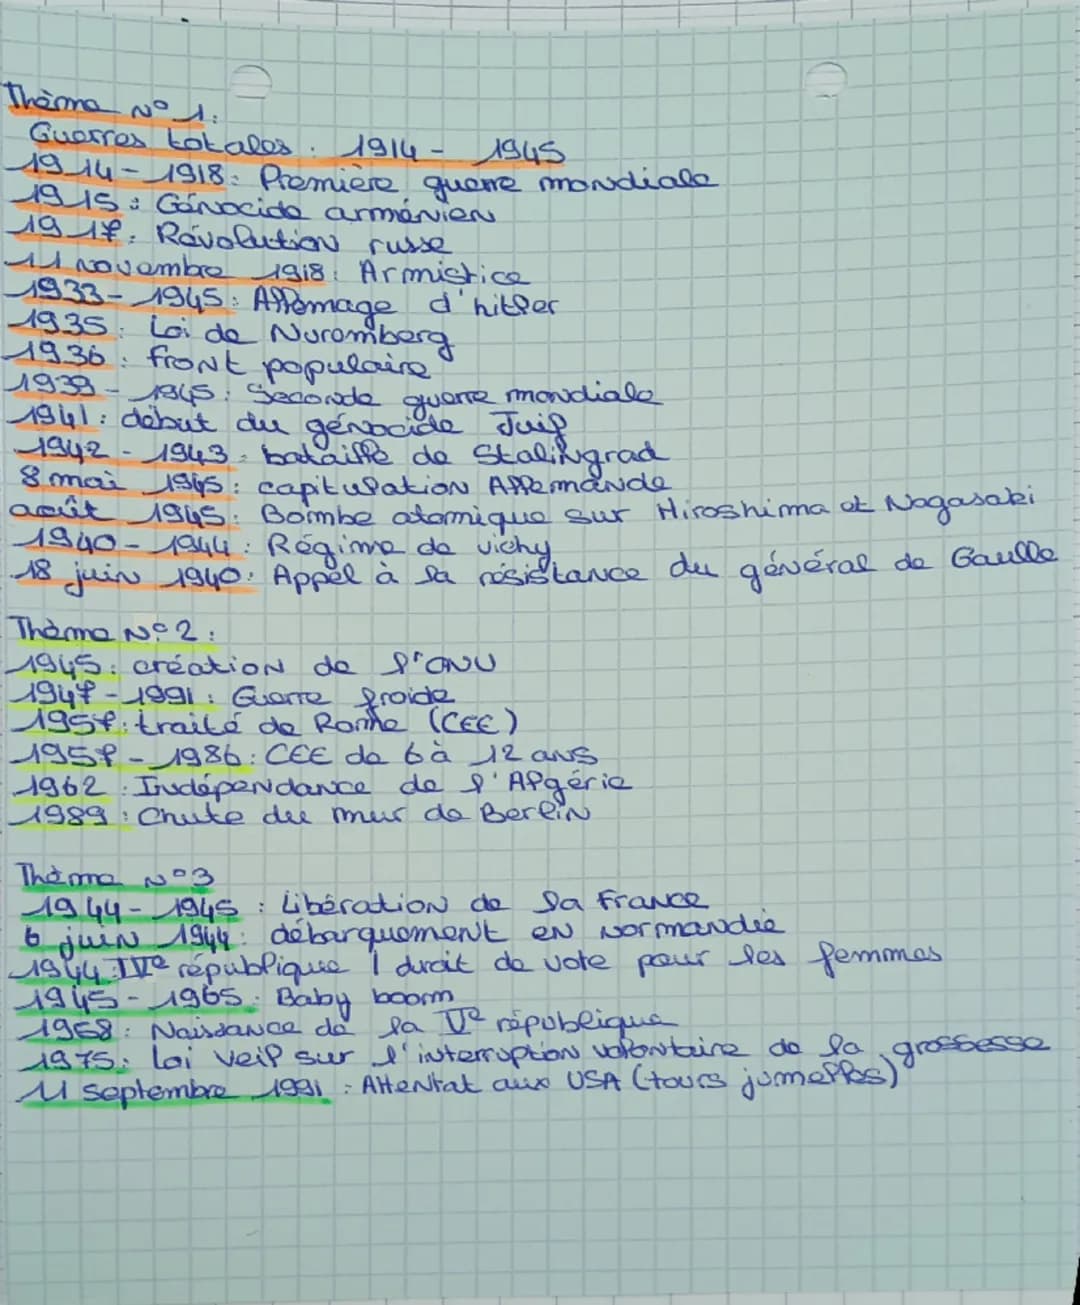 Thème N° 1:
Guerres totales : 1914 - 1945
1914 - 1918 : Première guerre mondiale
1915 : Génocide arménien
1917 : Révolution russe
11 novembre 1918 : Armistice
1933 - 1945 : Allemage d'hitler
1935 : Loi de Nuremberg
1936 : front populaire
1939 - 1945 : Seconde guerre mondiale
1941 : début du génocide Juif
1942 - 1943 : bataille de Stalingrad
8 mai 1945 : capitulation Allemande
août 1945 : Bombe atomique sur Hiroshima et Nagasaki
1940 - 1944 : Régime de vichy
18 juin 1940 : Appel à la résistance du général de Gaulle
Thème N° 2 :
1945 : création de l'ONU
1947 - 1991 : Guerre froide
1957 : traité de Rome (CEE)
1957 - 1986 : CEE de 6 à 12 ans
1962 : Indépendance de l'Algérie
1989 : Chute du mur de Berlin
Thème N° 3
1944 - 1945 : Libération de la France
6 juin 1944 : débarquement en Normandie
1944 : IVe république / droit de vote pour les femmes
1945 - 1965 : Baby boom
1958 : Naissance de la Ve république
1975 : Loi Veil sur l'interruption volontaire de la grossesse
11 septembre 1991 : Attentat aux USA (tours jumelles)